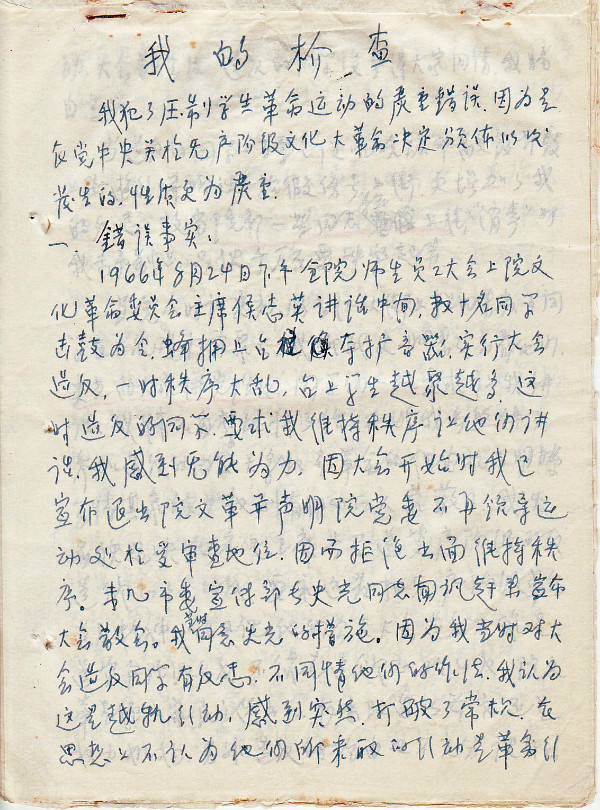 我的检查
我犯了压制学生革命运动的严重錯误,因为是
在党中央关於无产阶级文化大革命决定颁佈以后
发生的,性质更为严重。
一、錯误事实:
1966年8月24日下午全院师生员工大会上院文
化革命委员会主席侯志英讲话中间,数十名同学
击鼓为令,蜂拥上台 夺扩音器,实行大会
造反,一时秩序大乱,台上学生越聚越多,这
时造反的同学,要求我维持秩序让他们讲
话,我感到无能为力,因大会开始时我已
宣布退出院文革并声明院党委不再领导运
动处於受审查地位,因而拒绝出面维持秩
序。未几市委宣传部长史光同志闻讯赶来宣布
大会散会。我当时同意史光的措施。因为我当时对大
会造反同学有反感,不同情他们的作法,我认为
这是越轨行动,感到突然,打破了常规,在
思想上不认为他们所采取的行动是革命行